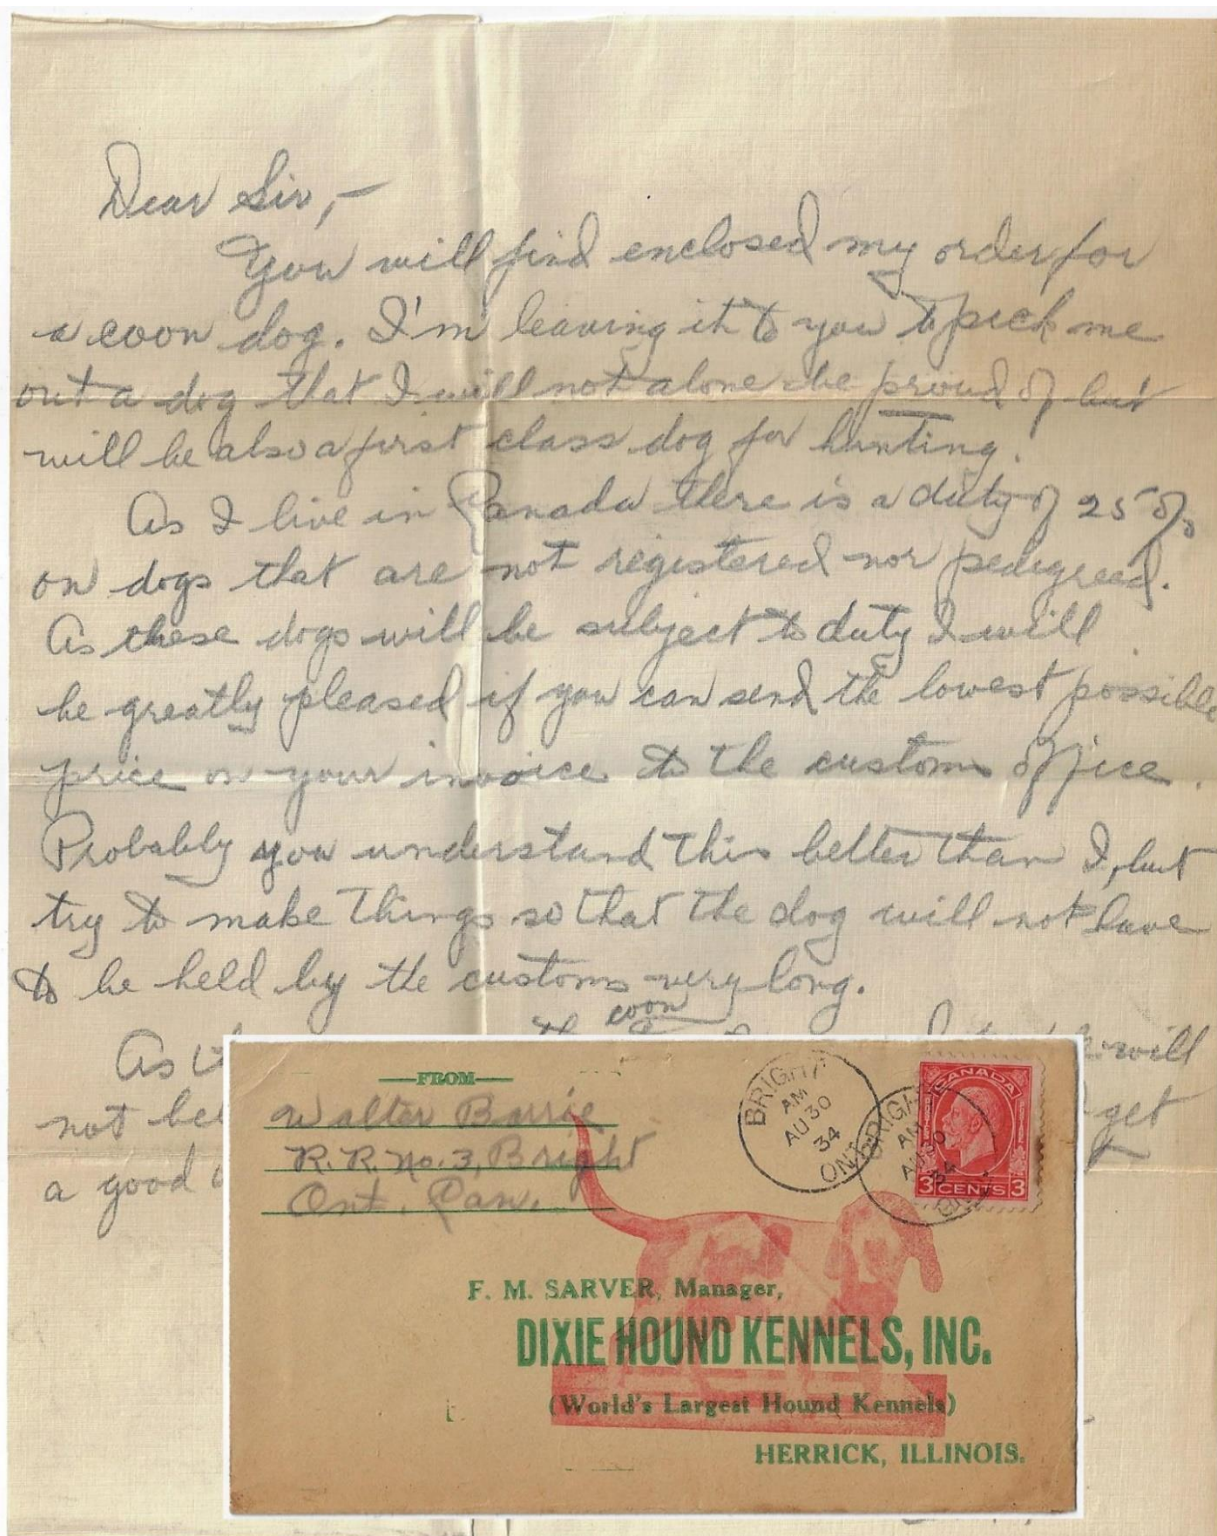 Dear Sir,-
You will find enclosed my order for
a coon dog. I'm leaving it to you to pick me
out a dog that I will not alone be proud of but
will be also a first class dog for hunting.
As I live in Canada there is a duty of 25%
on dogs that are not registered nor pedigreed.
As these dogs will be subject to duty I will
be greatly pleased if you can send the lowest possible
price on your invoice to the customs office.
Probably you understand this better than I, but
try to make things so that the dog will not have
to be held by the customs very long.
coon
As will
not get
a good
FROM
Walter Barrie
R.R. No. 3, Bright
Ont. Can.
BRIGHT
AM
AU 30
34
ONT
BRIGHT
AM
AU 30
34
CANADA
3 CENTS 3
F. M. SARVER, Manager,
DIXIE HOUND KENNELS, INC.
(World's Largest Hound Kennels)
HERRICK, ILLINOIS.